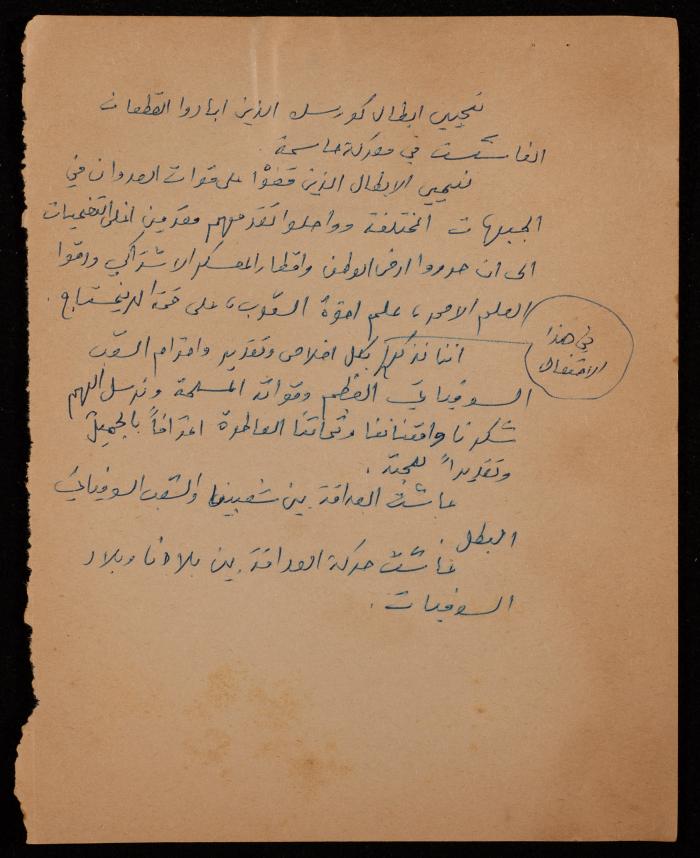 نحيي ابطال كورسك الذين ابادوا القطعات
الفاشست في معركة حاسمة.
نحيي الابطال الذين قضوا على قوات العدوان في
الجبهات المختلفة وواصلوا تقدمهم مقدمين اغلى التضحيات
الى ان حرروا ارض الوطن واقطار المعسكر الاشتراكي ورفعوا
العلم الاحمر، علم اخوة الشعوب، على قمة الريخستاج.
في هذا
الاحتفال
اننا نذكر بكل اخلاص وتقدير واحترام الشعب
السوفياتي العظيم وقواته المسلحة ونرسل اليهم
شكرنا وامتناننا وتحياتنا العاطرة اعترافاً بالجميل
وتقديراً للمحبة.
عاشت الصداقة بين شعبينا والشعب السوفياتي
البطل.
عاشت حركة الصداقة بين بلادنا وبلاد
السوفيات.